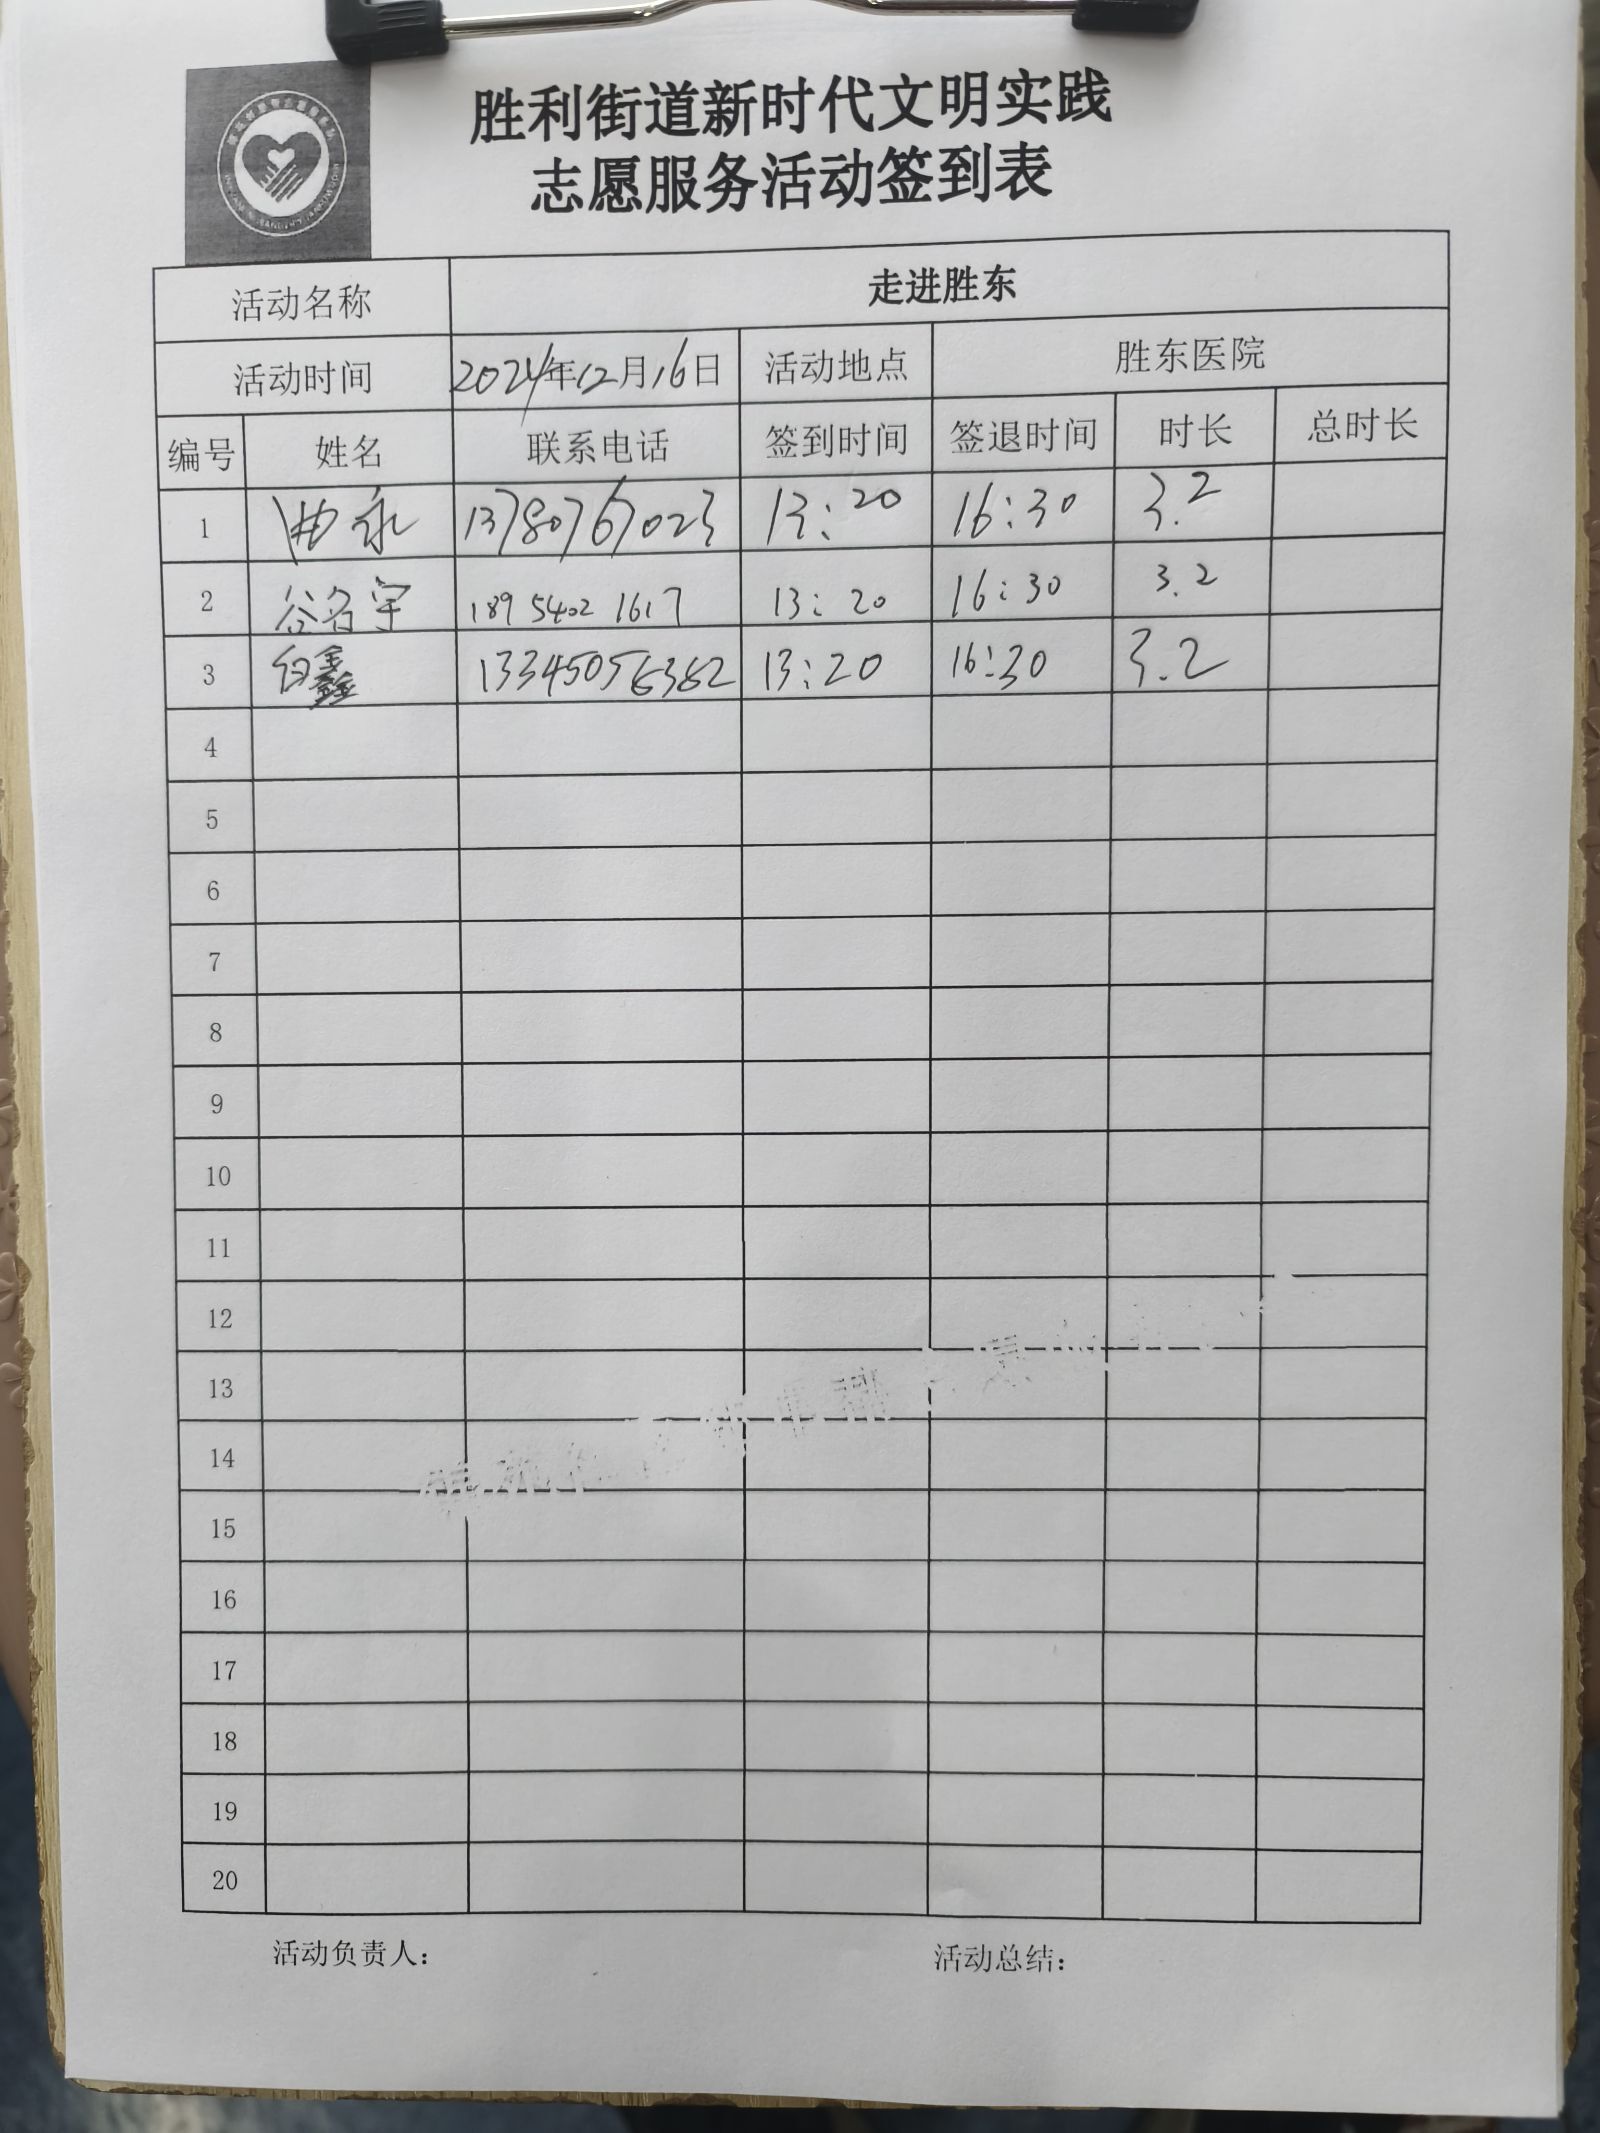 胜利街道新时代文明实践
志愿服务活动签到表
活动名称 走进胜东
活动时间 2024年12月16日 活动地点 胜东医院
编号 姓名 联系电话 签到时间 签退时间 时长 总时长
1 曲永 13780767023 13:20 16:30 3.2
2 谷名宇 189 5402 1617 13:20 16:30 3.2
3 白鑫 13345056362 13:20 16:30 3.2
4
5
6
7
8
9
10
11
12
13
14
15
16
17
18
19
20
活动负责人: 活动总结: